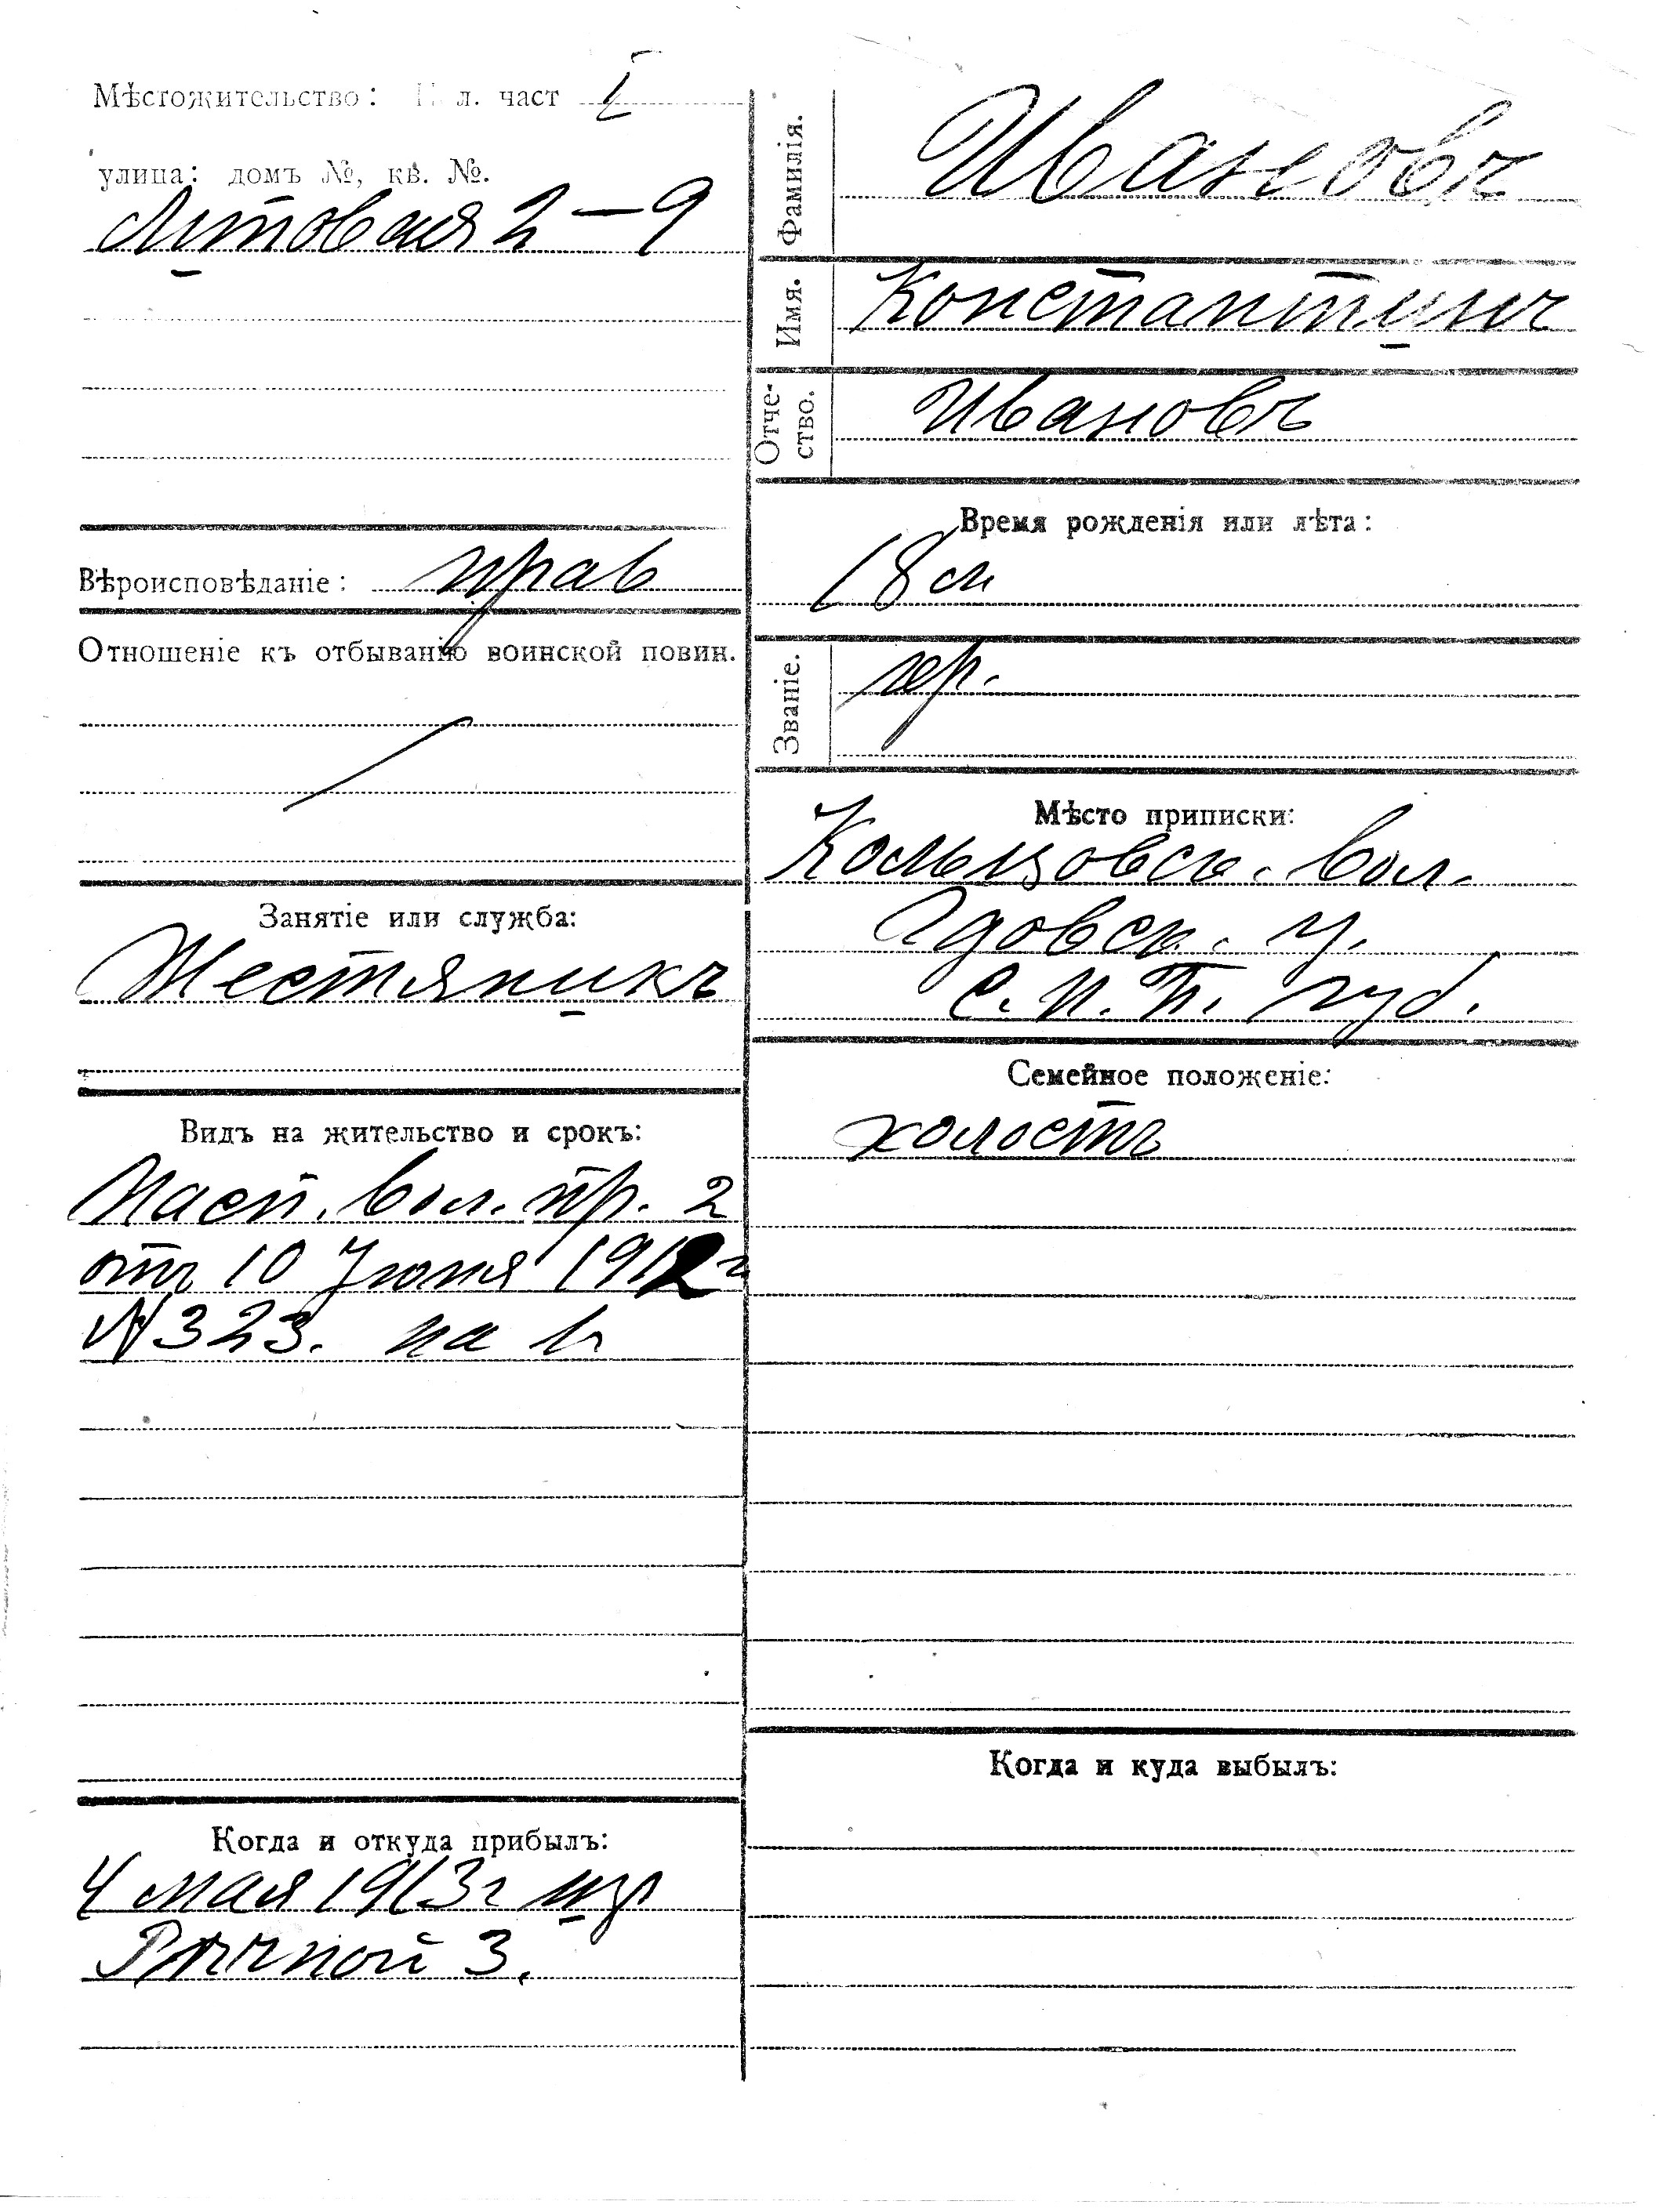 Мѣстожительство: л. част I
улица: домъ №, кв. №.
Литовая 2–9
Вѣроисповѣданіе: прав
Отношеніе къ отбыванію воинской повин.
Занятіе или служба:
Жестяникъ
Видъ на жительство и срокъ:
Пасп. вол. пр. 2
отъ 10 Іюня 1912 г
N 323. на 1 г
Когда и откуда прибылъ:
4 мая 1913 г изъ
3.
Фамилія.
Ивановъ
Имя.
Константинъ
Отче-
ство.
Ивановъ
Время рожденія или лѣта:
18 л
Званіе.
кр.
Мѣсто приписки:
Кольцовск. вол.
Гдовск. у.
С.П.Б. губ.
Семейное положеніе:
холостъ
Когда и куда выбылъ: